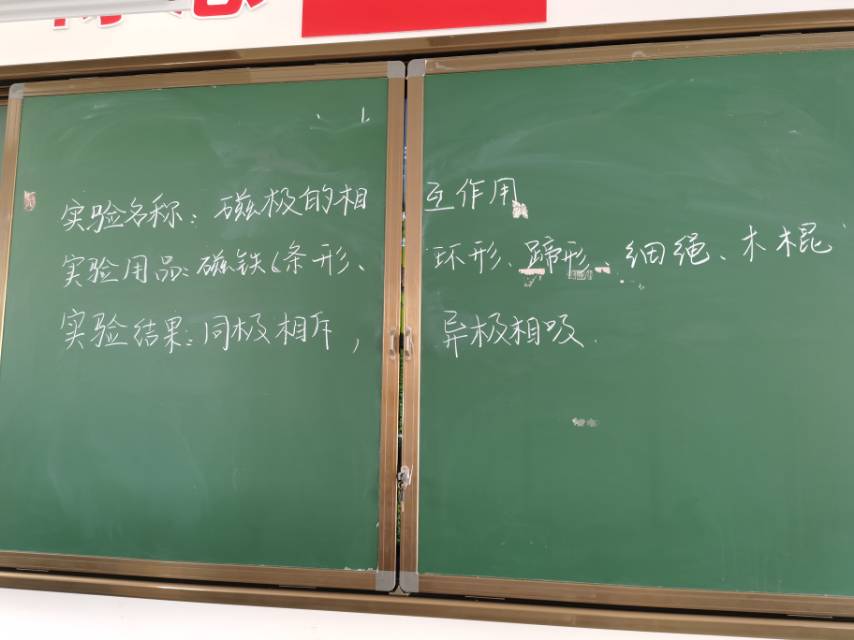 实验名称：磁极的相互作用
实验用品：磁铁(条形、环形、蹄形、细绳、木棍
实验结果：同极相斥，异极相吸.